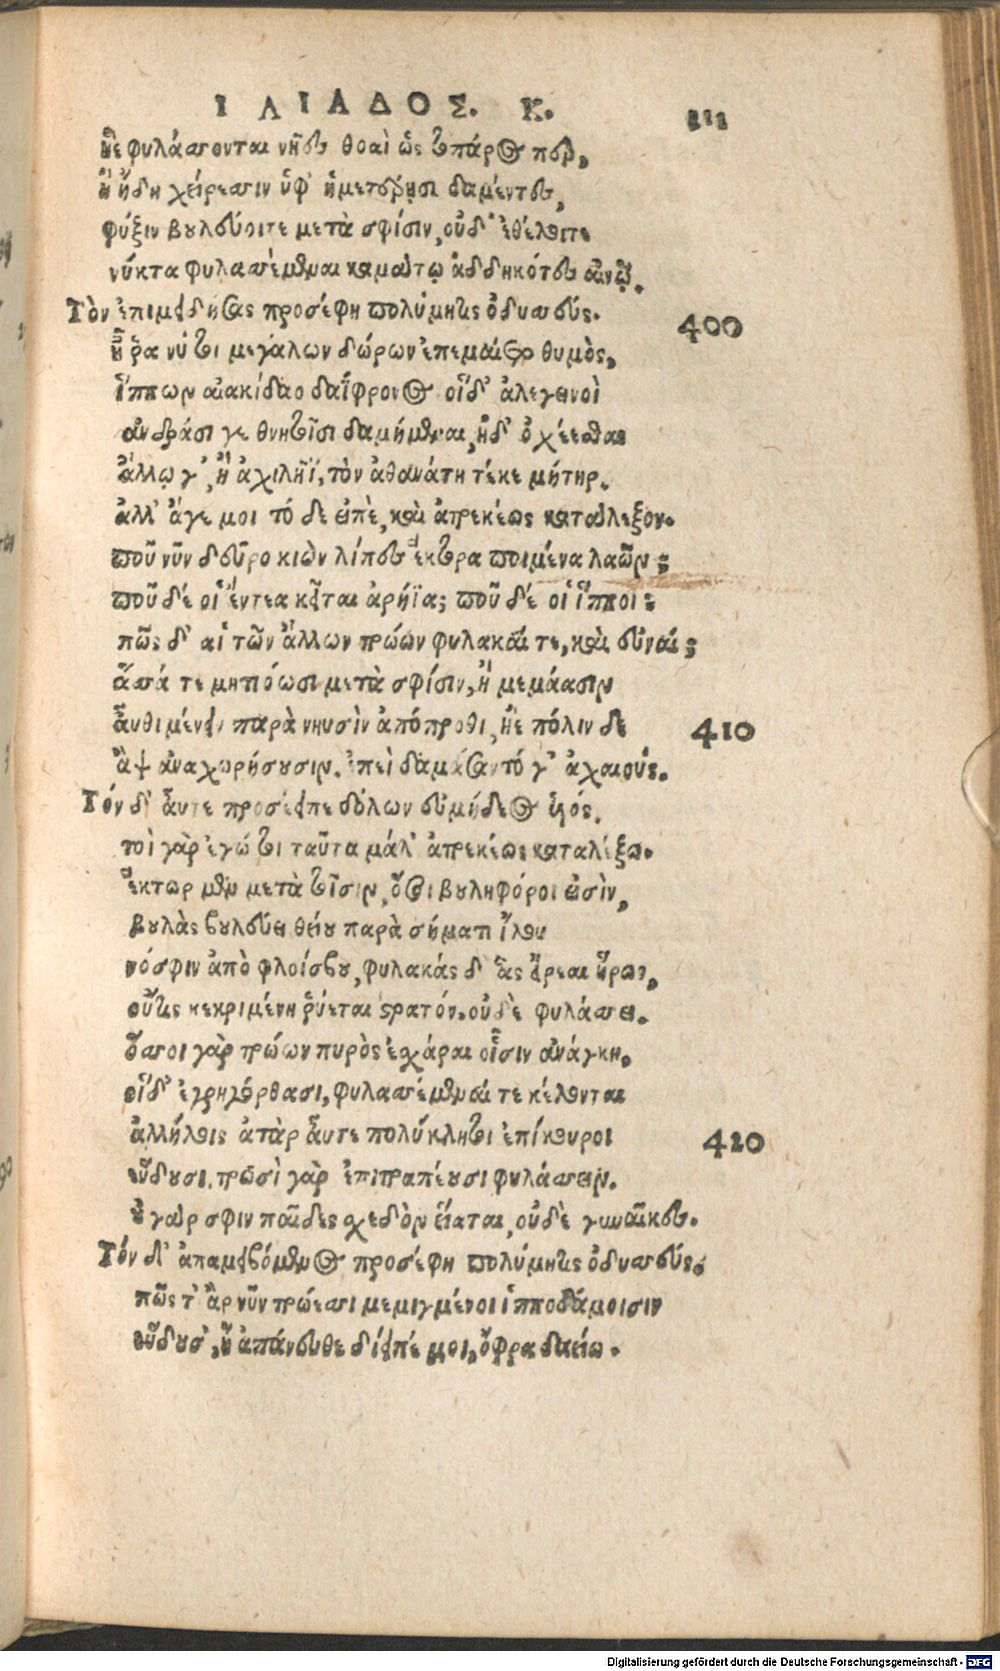 ΙΛΙΑΔΟΣ. Κ. 111
ἠὲ φυλάσσονται νῆες θοαὶ ὡς τοπάρος περ,
ἢ ἤδη χείρεσσιν ὑφ' ἡμετέρῃσι δαμέντες,
φύξιν βουλεύοιτε μετὰ σφίσιν, οὐδ' ἐθέλοιτε
νύκτα φυλασσέμεναι καμάτῳ ἀδδηκότες αἰνῷ.
Τὸν ἐπιμειδήσας προσέφη πολύμητις ὀδυσσεύς. 400
ἦ ῥα νύ τοι μεγάλων δώρων ἐπεμαίετο θυμὸς,
ἵππων αἰακίδαο δαΐφρονος οἵδ' ἀλεγεινοὶ
ἀνδράσι γε θνητοῖσι δαμήμεναι, ἠδ' ὀχέεσθαι
ἄλλῳ γ', ἢ ἀχιλῆϊ, τὸν ἀθανάτη τέκε μήτηρ.
ἀλλ' ἄγε μοι τό δε εἰπὲ, καὶ ἀτρεκέως κατάλεξον.
ποῦ νῦν δεῦρο κιὼν λίπες ἕκτορα ποιμένα λαῶν;
ποῦ δέ οἱ ἔντεα κεῖται ἀρήϊα; ποῦ δέ οἱ ἵπποι;
πῶς δ' αἱ τῶν ἄλλων τρώων φυλακαί τε, καὶ εὐναί;
ἅσσά τε μητιόωσι μετὰ σφίσιν, ἢ μεμάασιν
αὖθι μένειν παρὰ νηυσὶν ἀπόπροθι, ἠὲ πόλιν δε 410
ἂψ ἀναχωρήσουσιν. ἐπεὶ δαμάσαντό γ' ἀχαιούς.
Τόν δ' αὖτε προσέειπε δόλων εὐμήδεος υἱός.
τοὶ γὰρ ἐγώ τοι ταῦτα μάλ' ἀτρεκέως καταλέξω.
ἕκτωρ μὲν μετὰ τοῖσιν, ὅσοι βουληφόροι εἰσὶν,
βουλὰς βουλεύει θείου παρὰ σήματι ἴλου
νόσφιν ἀπὸ φλοίσβου, φυλακάς δ' ἃς εἴρεαι ἥρως,
οὔτις κεκριμένη ῥύεται στρατόν. οὐδὲ φυλάσσει.
ὅσσοι γὰρ τρώων πυρὸς ἐσχάραι οἷσιν ἀνάγκη,
οἵδ' ἐγρηγόρθασι, φυλασσέμεναί τε κέλονται
ἀλλήλοις ἀτὰρ αὖτε πολύκλητοι ἐπίκουροι 420
εὕδουσι. τρωσὶ γὰρ ἐπιτραπέουσι φυλάσσειν.
οὐ γάρ σφιν παῖδες σχεδὸν εἵαται, οὐδὲ γυναῖκες.
Τόν δ' ἀπαμειβόμενος προσέφη πολύμητις ὀδυσσεύς.
πῶς τ' ἂρ νῦν τρώεσσι μεμιγμένοι ἱπποδάμοισιν
εὕδουσ', ἢ ἀπάνευθε δίειπέ μοι, ὄφρα δαείω.
Digitalisierung gefördert durch die Deutsche Forschungsgemeinschaft - DFG